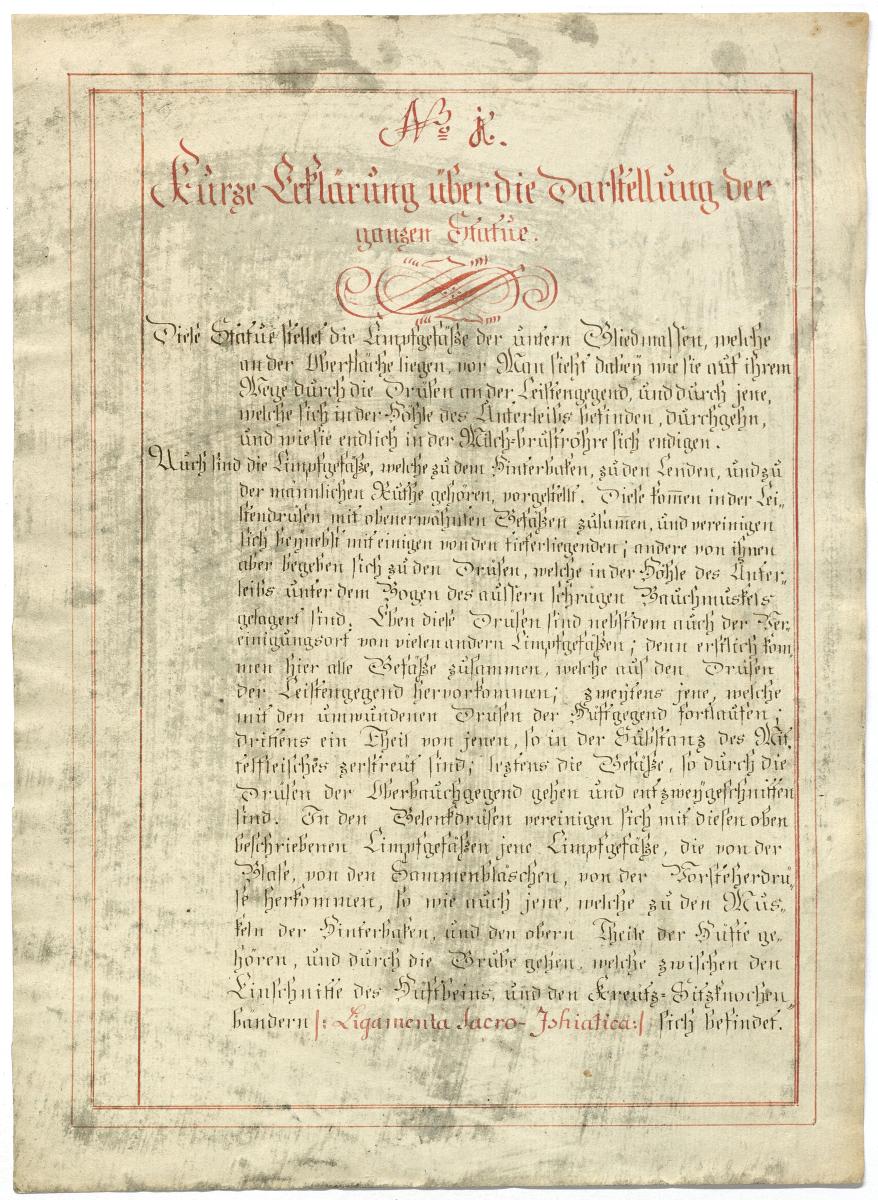 No 1.
Kurze Erklärung über die Darstellung der
ganzen Statue.
Diese Statue stellet die Limpfgefäße der untern Gliedmassen, welche
an der Oberfläche liegen, vor Man sieht dabeÿ wie sie auf ihrem
Wege durch die Drüsen an der Leistengegend, und durch jene,
welche sich in der Höhle des Unterleibs befinden, durchgehn,
und wie sie endlich in der Milch-brustrőhre sich endigen.
Auch sind die Limpfgefäße, welche zu dem Hinterbaken, zu den Lenden, und zu
der männlichen Ruthe gehören, vorgestellt. Diese kom̅en in der Lei„
stendrüsen mit obenerwähnten Gefäßen zusam̅en, und vereinigen
sich beÿnebst mit einigen von den tieferliegenden; andere von ihnen
aber begeben sich zu den Drüsen, welche in der Höhle des Unter„
leibs unter dem Bogen des äussern schrägen Bauchmuskels
gelagert sind. Eben diese Drüsen sind nebstdem auch der Ver„
einigungsort von vielen andern Limpfgefäßen; denn erstlich kom„
men hier alle Gefäße zusammen, welche aus den Drüsen
der Leistengegend hervorkommen; zweÿtens jene, welche
mit den umwundenen Drüsen der Hüftgegend fortlaufen;
drittens ein Theil von jenen, so in der Substanz des Mit„
telfleisches zerstreut sind; leztens die Gefäße, so durch die
Drüsen der Oberbauchgegend gehen und entzweÿgeschnitten
sind. In den Gelenkdrüsen vereinigen sich mit diesen oben
beschriebenen Limpfgefäßen jene Limpfgefäße, die von der
Blase, von den Sammenbläschen, von der Vorsteherdrü„
se herkommen, so wie auch jene, welche zu den Mus„
keln der Hinterbaken, und den obern Theile der Hüfte ge„
hören, und durch die Grube gehen, welche zwischen den
Einschnitte des Hüftbeins, und den Kreutz-Sitzknochen„
bändern |: Ligamenta sacro-Ishiatica :| sich befindet.